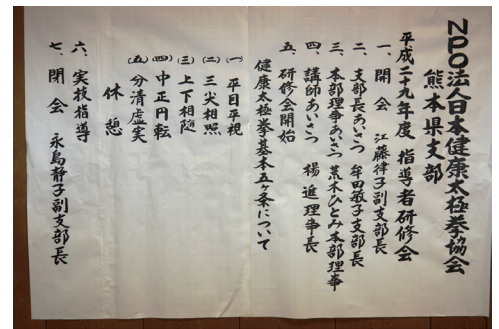 NPO法人日本健康太極拳協会
熊本県支部
平成二十九年度 指導者研修会
一、開会 江藤律子副支部長
二、支部長あいさつ 牟田敏子支部長
三、本部理事あいさつ 荒木ひとみ本部理事
四、講師あいさつ 楊進理事長
五、研修会開始
健康太極拳基本五ヶ条について
(一) 平目平視
(二) 三尖相照
(三) 上下相随
(四) 中正円転
(五) 分清虚実
休憩
六、実技指導
七、閉会 永島静子副支部長